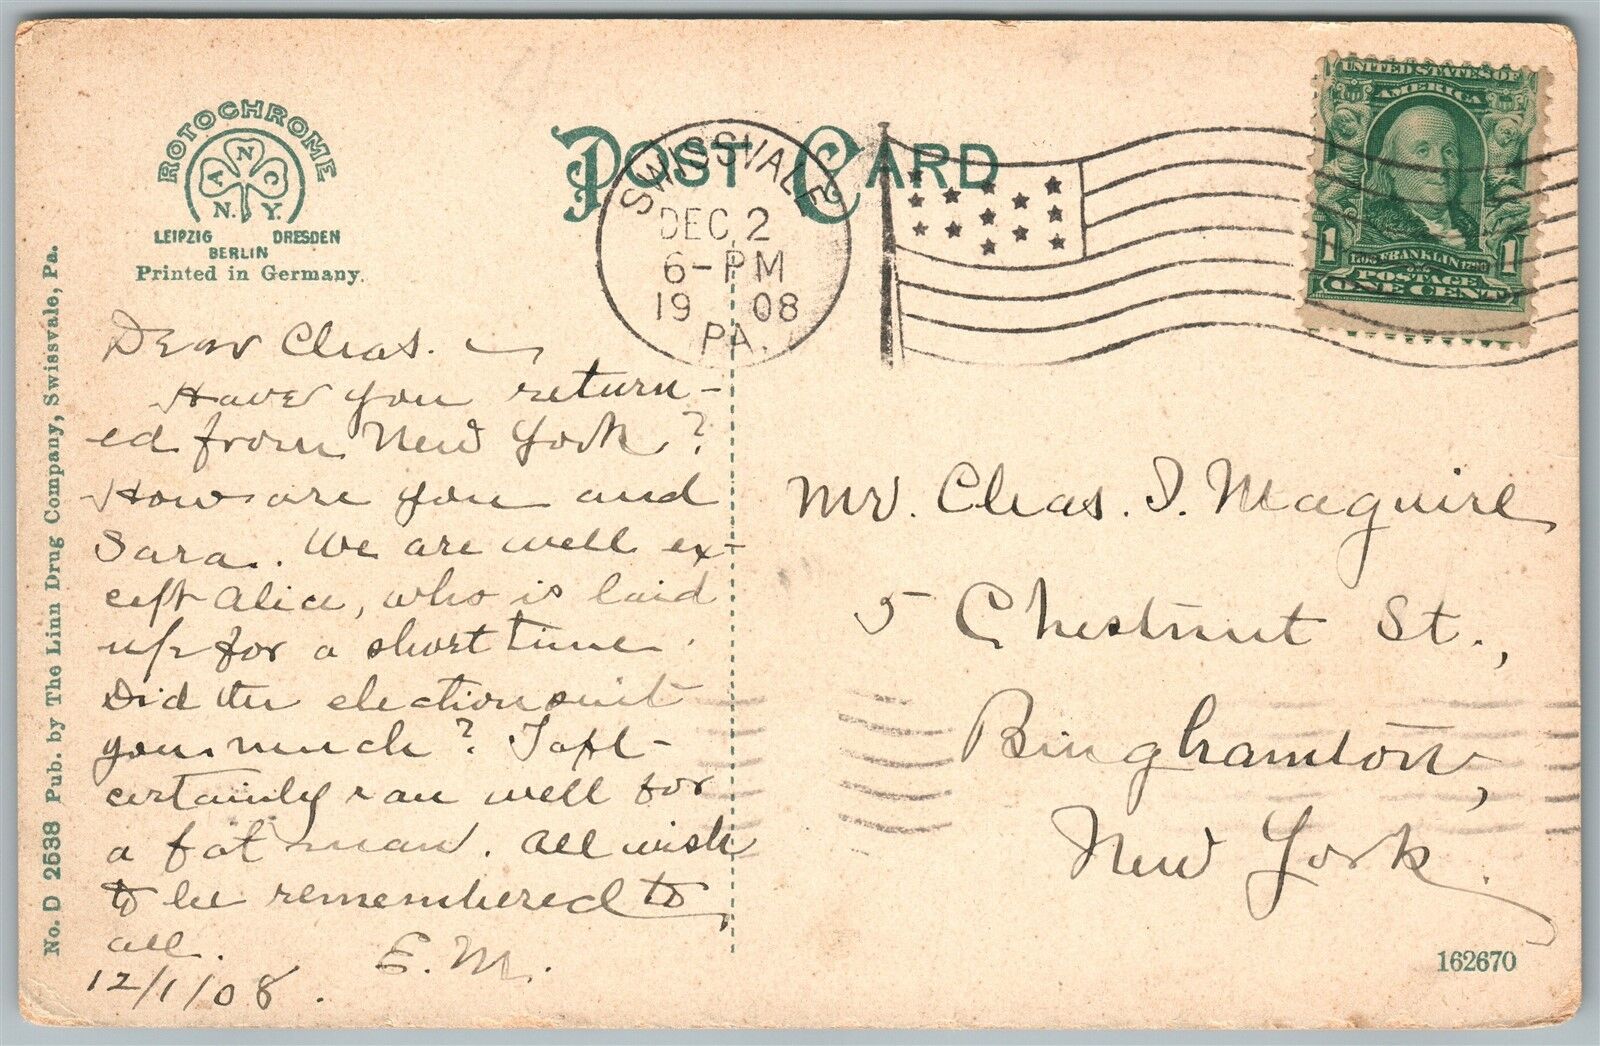 ROTOCHROME
A N C
N. Y.
LEIPZIG DRESDEN
BERLIN
Printed in Germany.
POST CARD
SWISSVALE
DEC 2
6-PM
1908
PA.
UNITED STATES OF
AMERICA
1706 FRANKLIN 1790
1 1
POSTAGE
ONE CENT
No. D 2538 Pub. by The Linn Drug Company, Swissvale, Pa.
Dear Chas. —
Have you return-
ed from New York?
How are you and
Sara. We are well ex-
cept Alice, who is laid
up for a short time.
Did the election suit
you much? Taft
certainly ran well for
a fat man. All wish
to be remembered to
all. E. M.
12/1/08.
Mr. Chas. I. Maguire
5 Chestnut St.,
Binghamton,
New York.
162670